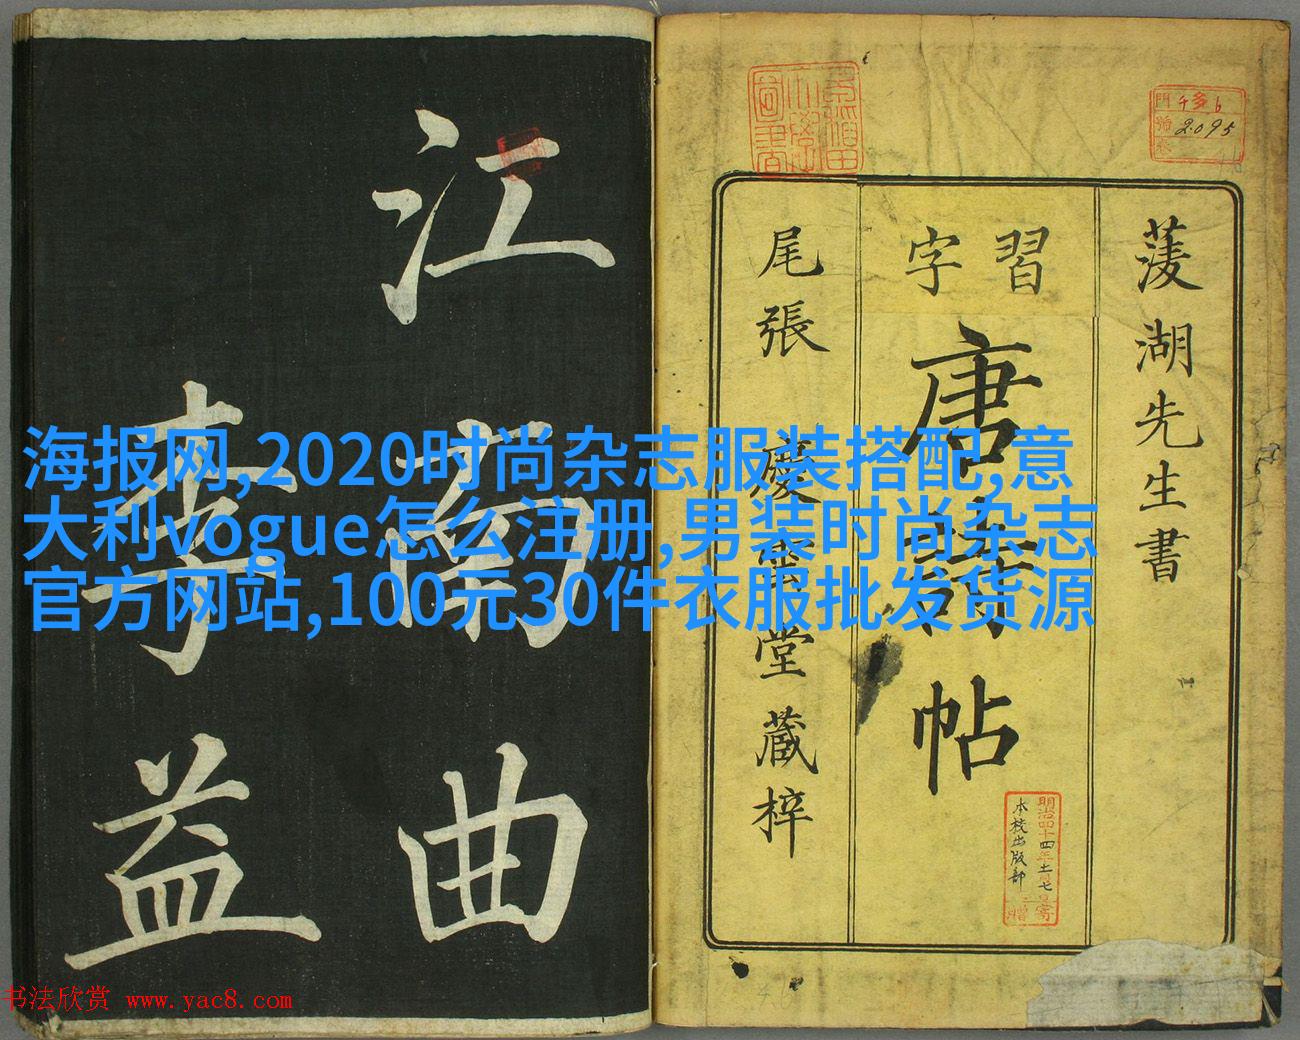 海报网,2020时尚杂志服装搭配,意
大利vogue怎么注册,男装时尚杂志
官方网站,100元30件衣服批发货源
蓤湖先生書
習字
唐詩帖
尾張 慶雲堂藏梓
江南曲
李益
千多6
2095
明治四十四年十一月七日
本校出版部
寄贈
书法欣赏 www.yac8.com